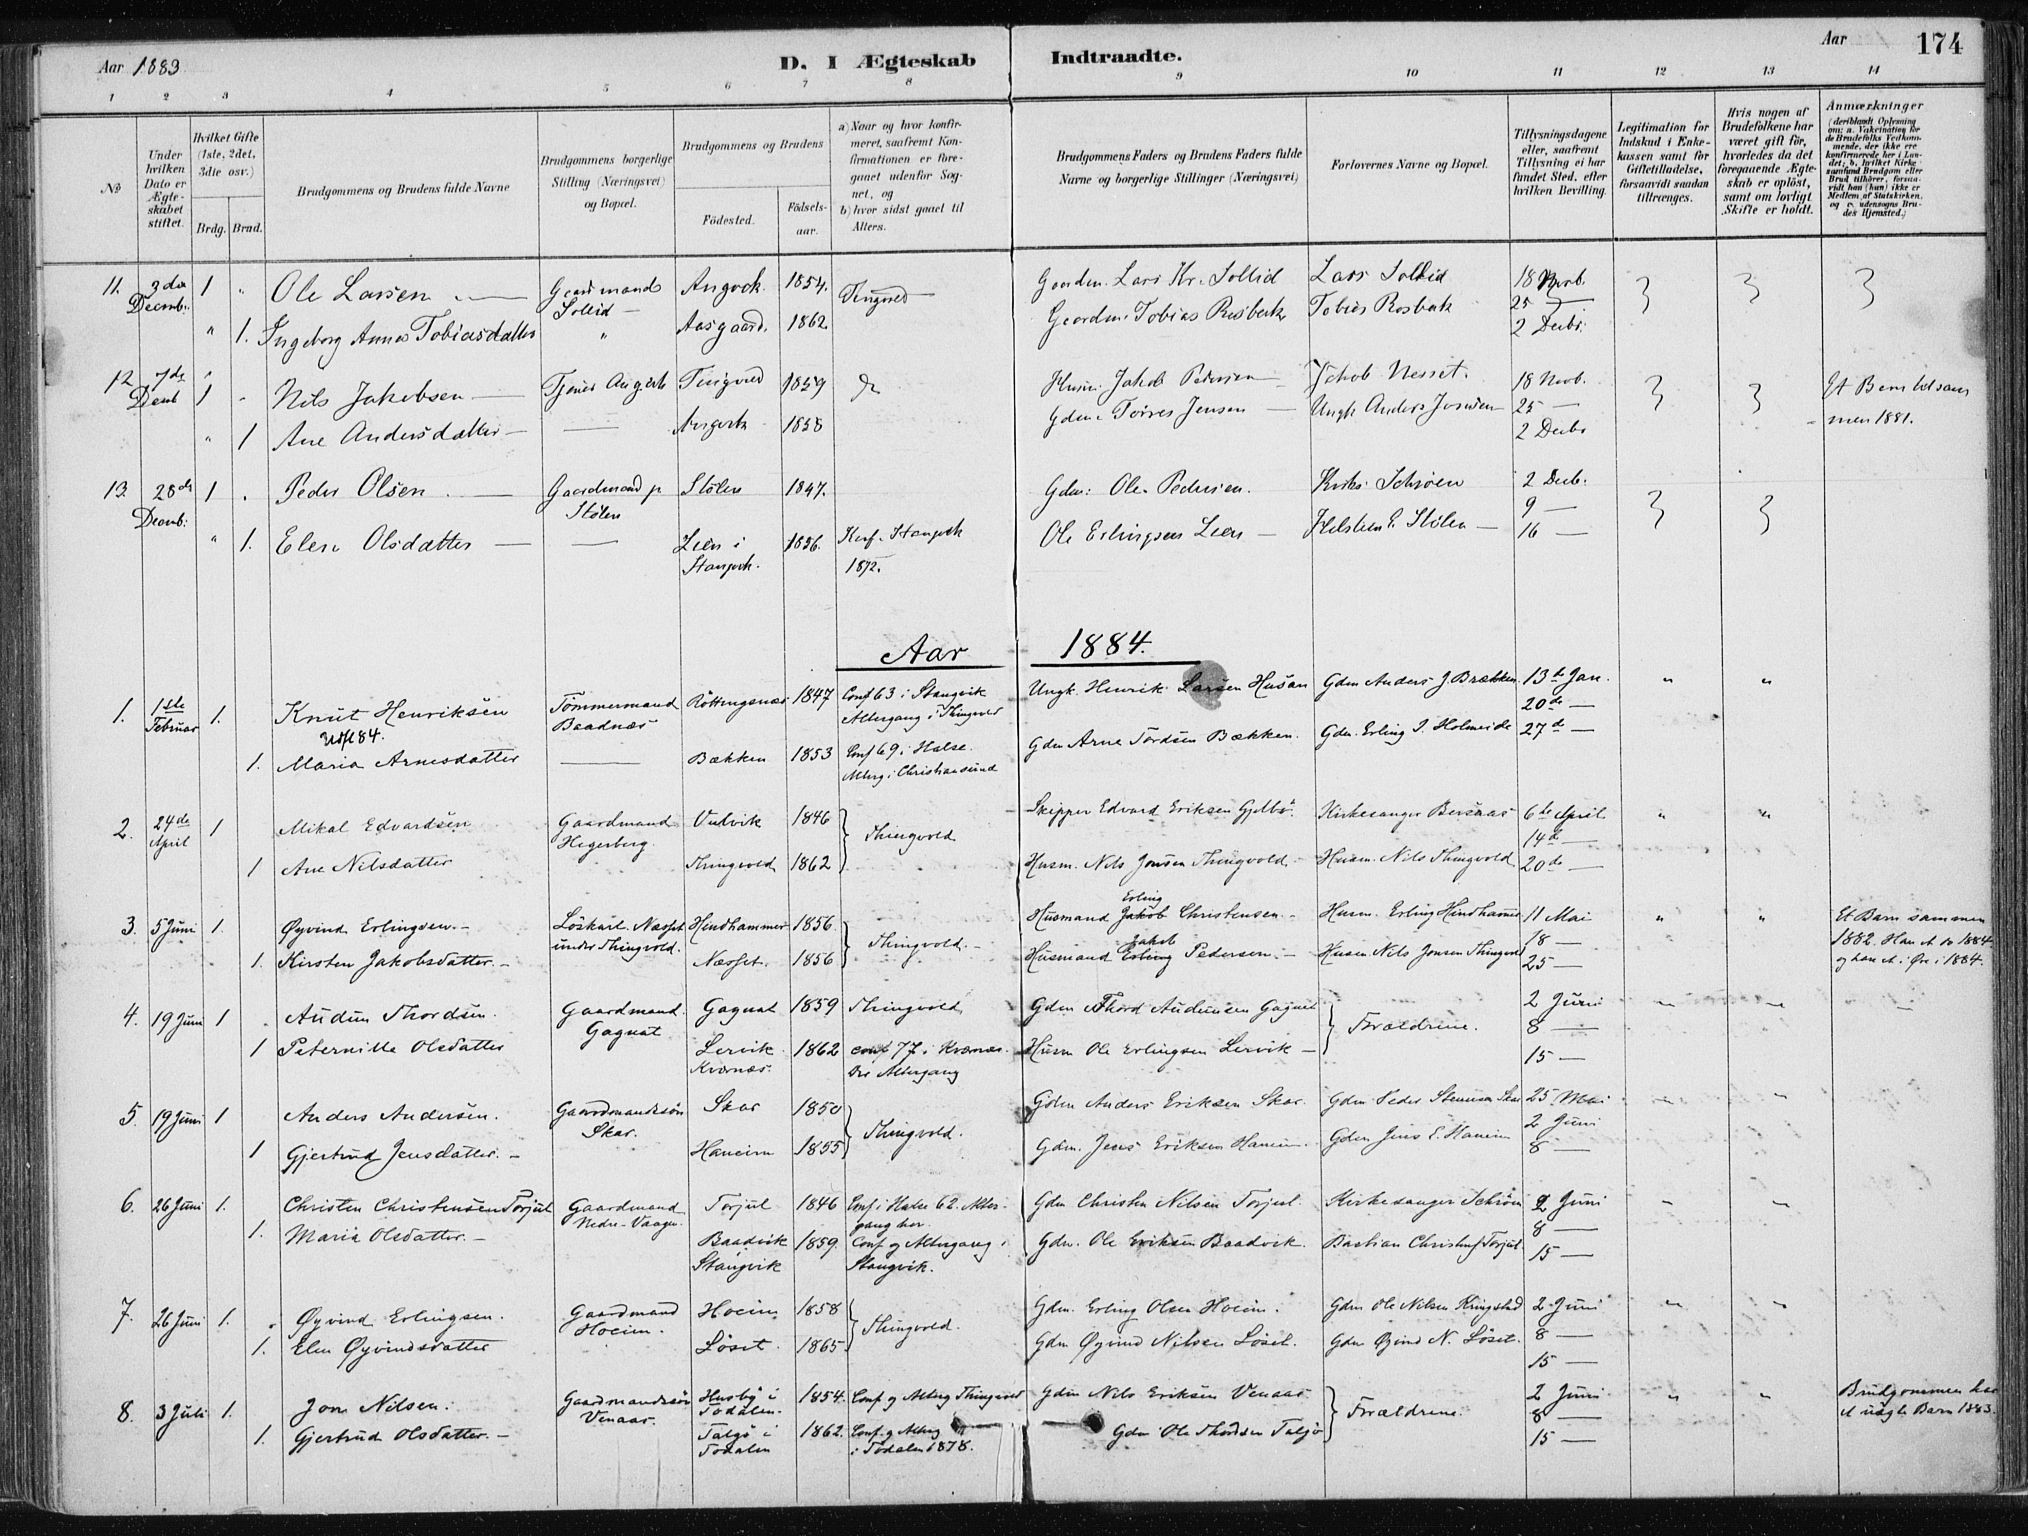 Aar 1883
D. I Ægteskab Indtraadte.
Aar 174
1 2 3 4 5 6 7 8 9 10 11 12 13 14
No
Under hvilken Dato er Ægteskabet stiftet.
Hvilket Gifte (1ste, 2det, 3die osv.)
Brdg. Brud.
Brudgommens og Brudens fulde Navne
Brudgommens borgerlige Stilling (Næringsvei) og Bopæl.
Brudgommens og Brudens
Födested.
Födselsaar.
a) Naar og hvor konfirmeret, saafremt Konfirmationen er foregaaet udenfor Sognet, og
b) hvor sidst gaaet til Alters.
Brudgommens Faders og Brudens Faders fulde Navne og borgerlige Stillinger (Næringsvei)
Forlovernes Navne og Bopæl.
Tillysningsdagene eller, saafremt Tillysning ei har fundet Sted, efter hvilken Bevilling.
Legitimation for Indskud i Enkekassen samt for Giftetilladelse, forsaavidt saadan tiltrænges.
Hvis nogen af Brudefolkene har været gift før, hvorledes da det foregaaende Ægteskab er oplöst, samt om lovligt Skifte er holdt.
Anmærkninger (deriblandt Oplysning om: a. Vakcination for de Brudefolks Vedkommende, der ikke ere konfirmerede her i Landet; b. hvilket Kirkesamfund Brudgom eller Brud tilhører, forsaavidt han (hun) ikke er Medlem af Statskirken, og c. udensogns Brudes Hjemsted.)
11. 3die Decmb: 1 " Ole Larsen Gaardmand Sollid Angvik 1854. Tingvold Gaardm. Lars Kr. Sollid Lars Sollid 18 Novb.
" 1. Ingeborg Anne Tobiasdatter " Aasgaard. 1862. Gaardm: Tobias Rosberk Tobias Rosberk 25 —
2 Decbr.
12. 7de Decmb 1 " Nils Jakobsen Tjener Angvik Tingvold 1859 do Husm. Jakob Pedersen Jakob Nesset. 18 Novb. Et Barn tilsam
" 1 Ane Andersdatter — Angvik 1858 Gdm. Jensen Ungk Anders Jensen 25 — men 1881.
2 Decbr
13. 28de Decmb: 1 . Peder Olsen Gaardmand p. Stölen Stölen 1847. Gdm: Ole Pedersen. Schröen 2 Decb.
" 1. Elen Olsdatter — Lien i Stangvik. 1856. Konf. Stangvik 1872. Ole Erlingsen Lien E. Stölen 9 —
16 —
Aar 1884.
1. 1ste Februar 1. Knut Henriksen Tömmermand Baadnæs Röttingsnæs 1847 Conf 63 i Stangvik Altergang i Thingvold Ungk. Henrik Larsen Husan Gdm Anders J Brækken 13de Jan. " "
84.
20de —
1. Maria Arnesdatter — Bækken 1853 Conf 69 i Halse. Alterg i Christiansund Gdm Arne Tordsen Bækken. Gdm. Erling I. Holmeide 27de —
2. 24de April 1 Mikal Edvardsen Gaardmand Hegerberg Vulvik 1846 } Thingvold Skipper Edvard Eriksen Gjelbö. Kirkesanger Bersaas 6te April " "
14de —
1 Ane Nilsdatter Thingvold 1862 Husm. Nils Jonsen Thingvold Husm. Nils Thingvold 20de —
3. 5 Juni 1. Øyvind Erlingsen Löskarl. Næsset under Thingvold. Hindhammer 1856. } Thingvold. Husmand Jakob Erling Christensen Husm. Erling Hindhammer 11 Mai " " Et Barn sammen
18 — 1882. Han et do 1884
1. Kirsten Jakobsdatter. Næsset. 1856 Husmand Erling Jakob Pedersen. Husm. Nils Jonsen Thingvold 25 — og hun et i Øre i 1884.
4. 19 Juni 1 . Audun Thordsen. Gaardmand. Gagnat Gagnat 1859 Thingvold Gdm Thord Audunsen Gagnat } Forældrene. 2 Juni
8 —
1 Peternille Olsdatter Lervik Kværnæs. 1862 conf 77 i Kværnes. Do Altergang Husm Ole Erlingsen Lervik 15 —
5. 19 Juni 1 Anders Andersen. Gaardmandssön Skar. Skar 1850 } Thingvold. Gdm Anders Eriksen Skar. Gdm Peder Stenersen Skar 25 Mai
2 Juni
1 Gjertrud Jensdatter. Haneim 1855 Gdm. Jens Eriksen Haneim Gdm Jens E. Haneim 8 —
6. 26 Juni 1. Christen Christensen Torjul Gaardmand Nedre-Vaagen. Torjul 1846 Conf i Halse 62. Altergang her. Gdm Christen Nilsen Torjul. Kirkesanger Schröen 2 Juni
8 —
1. Maria Olsdatter. Baadvik Stangvik 1859. Conf og Altergang i Stangvik. Gdm. Ole Eriksen Baadvik. Bastian Christens. Torjul 15 —
7. 26 Juni 1. . Øyvind Erlingsen. Gaardmand Hoeim. Hoeim 1858 } Thingvold. Gdm. Erling Olsen Hoeim. Gdm Ole Nilsen Kringstad 2 Juni
1. Elen Øyvindsdatter Löset. 1865 Gdm Øyvind Nilsen Löset. Gdm Øyvind N. Löset. 8 —
15 —
8. 3 Juli 1. Jon Nilsen. Gaardmandssön Venaas. Husby i Todalen. 1854. Conf. og Alterg Thingvold Gdm Nils Eriksen Venaas } Forældrene. 2 Juni " " Brudgommen har
8 — et uægte Barn 1883.
1. Gjertrud Olsdatter. Talgö i Todalen 1862. Conf. og Alterg i Todalen 1878. Gdm Ole Thordsen Talgö 15 —